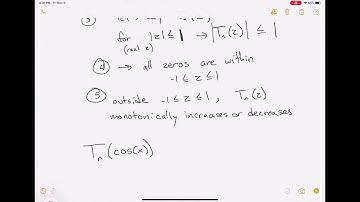 for |z| ≤ 1 → |Tₙ(z)| ≤ 1
(real z)
④ → all zeros are within
-1 ≤ z ≤ 1
⑤ outside -1 ≤ z ≤ 1, Tₙ(z)
monotonically increases or decreases
Tₙ(cos(x))